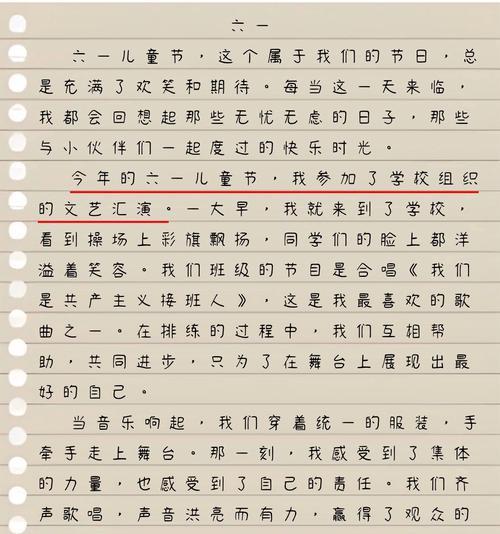 六一
六一儿童节，这个属于我们的节日，总
是充满了欢笑和期待。每当这一天来临，
我都会回想起那些无忧无虑的日子，那些
与小伙伴们一起度过的快乐时光。
今年的六一儿童节，我参加了学校组织
的文艺汇演。一大早，我就来到了学校，
看到操场上彩旗飘扬，同学们的脸上都洋
溢着笑容。我们班级的节目是合唱《我们
是共产主义接班人》，这是我最喜欢的歌
曲之一。在排练的过程中，我们互相帮
助，共同进步，只为了在舞台上展现出最
好的自己。
当音乐响起，我们穿着统一的服装，手
牵手走上舞台。那一刻，我感受到了集体
的力量，也感受到了自己的责任。我们齐
声歌唱，声音洪亮而有力，赢得了观众的